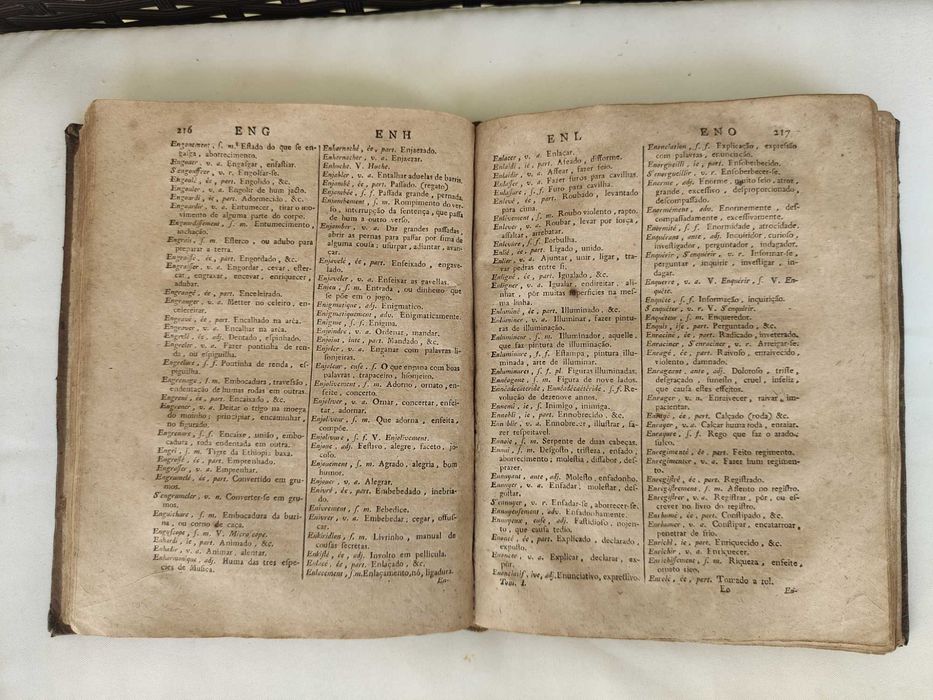 216 ENG ENH
Engonement, s. m. Estado do que se en-
gasga, aborrecimento.
Engouer, v. a. Engasgar, enfastiar.
S'engouffrer, v. r. Engolfar-se.
Engoulé, ée, part. Engolido, &c.
Engouler, v. a. Engolir de hum jacto.
Engourdi, ie, part. Adormecido, &c.
Engourdir, v. a. Entumecer, tirar o mo-
vimento de alguma parte do corpo.
Engourdissement, s. m. Entumecimento,
inchação.
Engrais, s. m. Esterco, ou adubo para
preparar a terra.
Engraissé, ée, part. Engordado, &c.
Engraisser, v. a. Engordar, cevar, ester-
car, engraxar, encevar, enriquecer,
adubar.
Engrangé, ée, part. Enceleirado.
Engranger, v. a. Metter no celeiro, en-
celeirar.
Engravé, ée, part. Encalhado na arêa.
Engraver, v. a. Encalhar na arêa.
Engrêlé, ée, adj. Dentado, espinhado.
Engreler, v. a. Fazer pontinha de ren-
da, ou espiguilha.
Engrelure, s. f. Pontinha de renda, es-
piguilha.
Engrenage, s. m. Embocadura, travessão,
endentação de humas rodas em outras.
Engrené, ée, part. Encaixado, &c.
Engrener, v. a. Deitar o trigo na moega
do moinho; principiar, encaminhar,
no figurado.
Engrenure, s. f. Encaixe, união, embo-
cadura, roda endentada em outra.
Engri, s. m. Tigre da Ethiopia baxa.
Engrossé, ée, part. Emprenhado.
Engrosser, v. a. Emprenhar.
Engrumelé, ée, part. Convertido em gru-
mos.
S'engrumeler, v. n. Converter-se em gru-
mos.
Enguichure, s. m. Embocadura da buzi-
na, ou corno de caça.
Engyscope, s. m. V. Microscope.
Enhardi, ie, part. Animado, &c.
Enhardir, v. a. Animar, alentar.
Enharmonique, adj. Huma das tres espe-
cies de Musica.
Enharnaché, ée, part. Enjaezado.
Enharnacher, v. a. Enjaezar.
Enhuche, V. Huche.
Enjabler, v. a. Entalhar aduelas de barris.
Enjambé, ée, part. Passado. (regato)
Enjambée, s. f. Passada grande, pernada.
Enjambement, s. m. Rompimento do ver-
so, interrupção da sentença, que passa
de hum a outro verso.
Enjamber, v. a. Dar grandes passadas,
abrir as pernas para passar por sima de
alguma cousa; usurpar, adiantar, avan-
çar.
Enjavelé, ée, part. Enfeixado, engave-
lado.
Enjaveler, v. a. Enfeixar as gavellas.
Enjeu, s. m. Entrada, ou dinheiro que
se põe em o jogo.
Enigmatique, adj. Enigmatico.
Enigmatiquement, adv. Enigmaticamente.
Enigme, s. f. Enigma.
Enjoindre, v. a. Ordenar, mandar.
Enjoint, inte, part. Mandado, &c.
Enjoler, v. a. Enganar com palavras li-
sonjeiras.
Enjoleur, euse, s. O que engana com boas
palavras, trapaceiro, lisonjeiro.
Enjolivement, s. m. Adorno, ornato, en-
feite, concerto.
Enjoliver, v. a. Ornar, concertar, enfei-
tar, adornar.
Enjoliveur, s. m. Que adorna, enfeita,
compõe.
Enjolivure, s. f. V. Enjolivement.
Enjoué, adj. Festivo, alegre, faceto, jo-
coso.
Enjouement, s. m. Agrado, alegria, bom
humor.
Enjouer, v. a. Alegrar.
Enivré, ée, part. Embebedado, inebria-
do.
Enivrement, s. m. Bebedice.
Enivrer, v. a. Embebedar; cegar, offus-
car.
Enkiridion, s. m. Livrinho, manual de
cousas secretas.
Enkisté, ée, adj. Involto em pellicula.
Enlacé, ée, part. Enlaçado, &c.
Enlacement, s. m. Enlaçamento, nó, ligadura.
En-
ENL ENO 217
Enlacer, v. a. Enlaçar.
Enlaidi, ie, part. Afeado, disforme.
Enlaidir, v. a. Affear, fazer feio.
Enlasser, v. a. Fazer furos para cavilhas.
Enlassure, s. f. Furo para cavilha.
Enlevé, ée, part. Roubado, levantado
para cima.
Enlevement, s. m. Roubo violento, rapto.
Enlever, v. a. Roubar, levar por força,
assaltar, arrebatar.
Enlevure, s. f. Borbulha.
Enlié, ée, part. Ligado, unido.
Enlier, v. a. Ajuntar, unir, ligar, tra-
var pedras entre si.
Enligné, ée, part. Igualado, &c.
Enligner, v. a. Igualar, endireitar, ali-
nhar, pôr muitas superficies na mes-
ma linha.
Enluminé, ée, part. Illuminado, &c.
Enluminer, v. a. Illuminar, fazer pintu-
ras de illuminação.
Enlumineur, s. m. Illuminador, aquelle
que faz pintura de illuminação.
Enluminure, s. f. Estampa, pintura illu-
minada, arte de illuminar.
Enlumineures, s. f. pl. Figuras illuminadas.
Enneagone, s. m. Figura de nove lados.
Ennéadecatéride, Ennéadécatéride, s. f. Re-
volução de dezenove annos.
Ennemi, ie, s. Inimigo, inimiga.
Ennobli, ie, part. Ennobrecido, &c.
Ennoblir, v. a. Ennobrecer, illustrar, fa-
zer respeitavel.
Ennoie, s. m. Serpente de duas cabeças.
Ennui, s. m. Desgosto, tristeza, enfado,
aborrecimento, molestia, dissabor, des-
prazer.
Ennuyant, ante, adj. Molesto, enfadonho.
Ennuyer, v. a. Enfadar, molestar, des-
gostar.
S'ennuyer, v. r. Enfadar-se, aborrecer-se.
Ennuyeusement, adv. Enfadonhamente.
Ennuyeux, euse, adj. Fastidioso, nojen-
to, que causa tedio.
Enoncé, ée, part. Explicado, declarado,
exposto.
Enoncer, v. a. Explicar, declarar, ex-
pôr.
Enonciatif, ive, adj. Enunciativo, expressivo.
Tom. I.
Enonciation, s. f. Explicação, expressão
com palavras, enunciação.
Enorgueilli, ie, part. Ensoberbecido.
S'enorgueillir, v. r. Ensoberbecer-se.
Enorme, adj. Enorme, muito feio, atroz,
grande, excessivo, desproporcionado,
descompassado.
Enormément, adv. Enormemente, des-
compassadamente, excessivamente.
Enormité, s. f. Enormidade, atrocidade.
Enquérant, ante, adj. Inquiridor, curioso,
investigador, perguntador, indagador.
Enquérir, S'enquérir, v. r. Informar-se,
perguntar, inquirir, investigar, in-
dagar.
Enquerre, v. a. V. Enquérir, s. V. En-
quête.
Enquête, s. f. Informação, inquirição.
S'enquêter, v. r. V. S'enquérir.
Enquêteur, s. m. Enqueredor.
Enquis, ise, part. Perguntado, &c.
Enraciné, ée, part. Radicado, inveterado.
Enraciner, S'enraciner, v. a. Arreigar-se.
Enragé, ée, part. Raivoso, damnado,
enraivecido,
violento, damnado.
Enrageant, ante, adj. Doloroso, triste,
desgraçado, funesto, cruel, infeliz,
que causa estes effeitos.
Enrager, v. n. Enraivecer, raivar, im-
pacientar.
Enrayé, ée, part. Calçado (roda) &c.
Enrayer, v. a. Calçar huma roda, enraiar.
Enrayure, s. f. Rego que faz o arado,
sulco.
Enregimenté, ée, part. Feito regimento.
Enregimenter, v. a. Fazer hum regimen-
to.
Enregistré, ée, part. Registrado.
Enregistrement, s. m. Assento no registro.
Enregistrer, v. a. Registrar, pôr, ou es-
crever no livro do registro.
Enrhumé, ée, part. Constipado, &c.
Enrhumer, v. a. Constipar, encatarroar,
penetrar de frio.
Enrichi, ie, part. Enriquecido, &c.
Enrichir, v. a. Enriquecer.
Enrichissement, s. m. Riqueza, enfeite,
ornato rico.
Enrolé, ée, part. Tomado a rol.
Ee En-